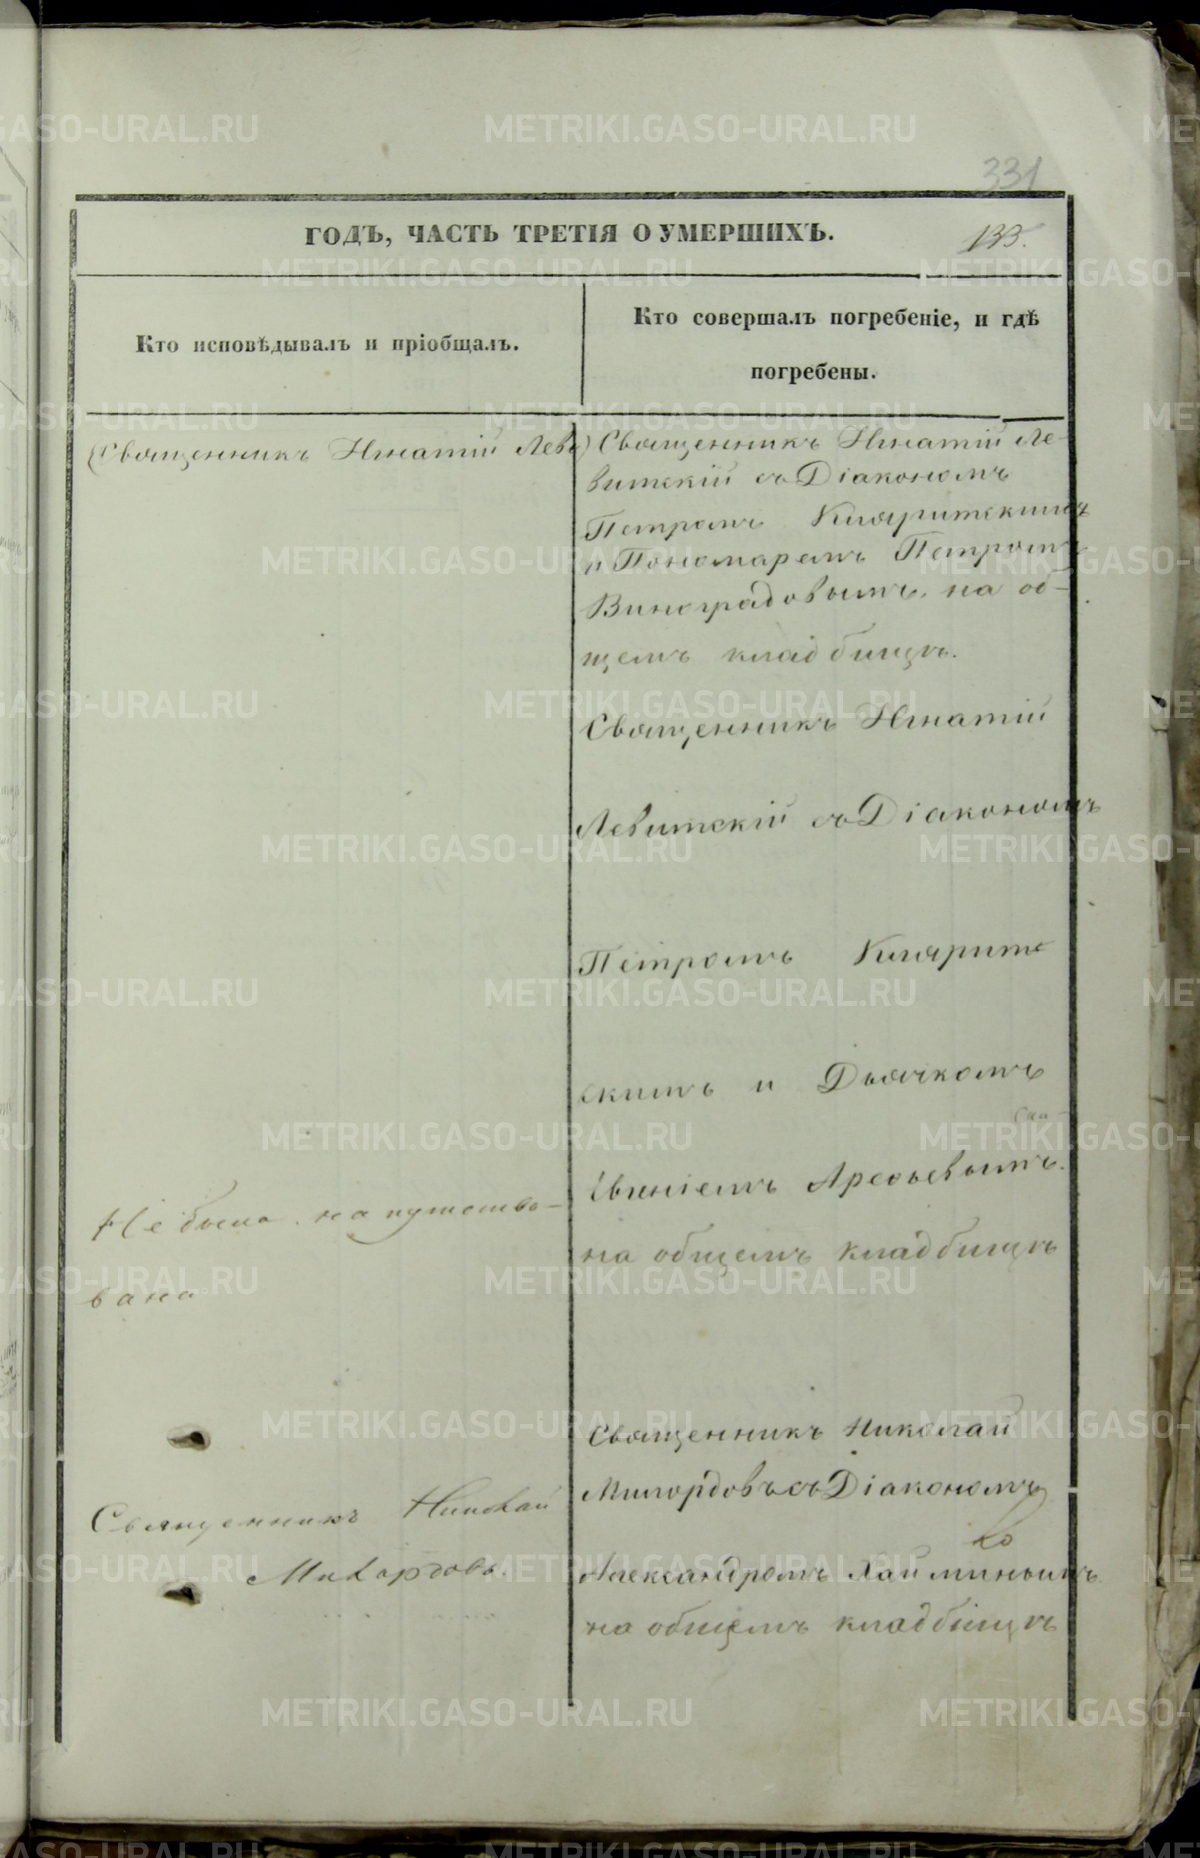 331
ГОДЪ, ЧАСТЬ ТРЕТІЯ О УМЕРШИХЪ.
133.
Кто исповѣдывалъ и пріобщалъ.
Кто совершалъ погребеніе, и гдѣ
погребены.
(Священникъ Игнатій Лев)
Священникъ Игнатій Ле-
витскій съ Діакономъ
Петромъ Кляритскимъ
и Пономаремъ Петромъ
Виноградовымъ, на об-
щемъ кладбищѣ.
Священникъ Игнатій
Левитскій съ Діакономъ
Петромъ Кляритс
скимъ и Дьячкомъ
Арефьевымъ.
на общемъ кладбищѣ
Не была напутство-
вана
Священникъ Николай
Милордовъ съ Діакономъ
Александромъ
на общемъ кладбищѣ
Священникъ Николай
Милордовъ.
METRIKI.GASO-URAL.RU